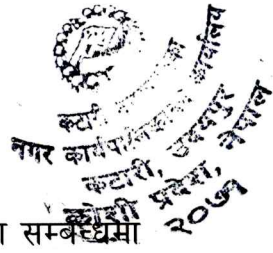 कटारी
नगर कार्यपालिकाको कार्यालय
कटारी, उदयपुर
कोशी प्रदेश, नेपाल
२०७३
सम्बन्धमा